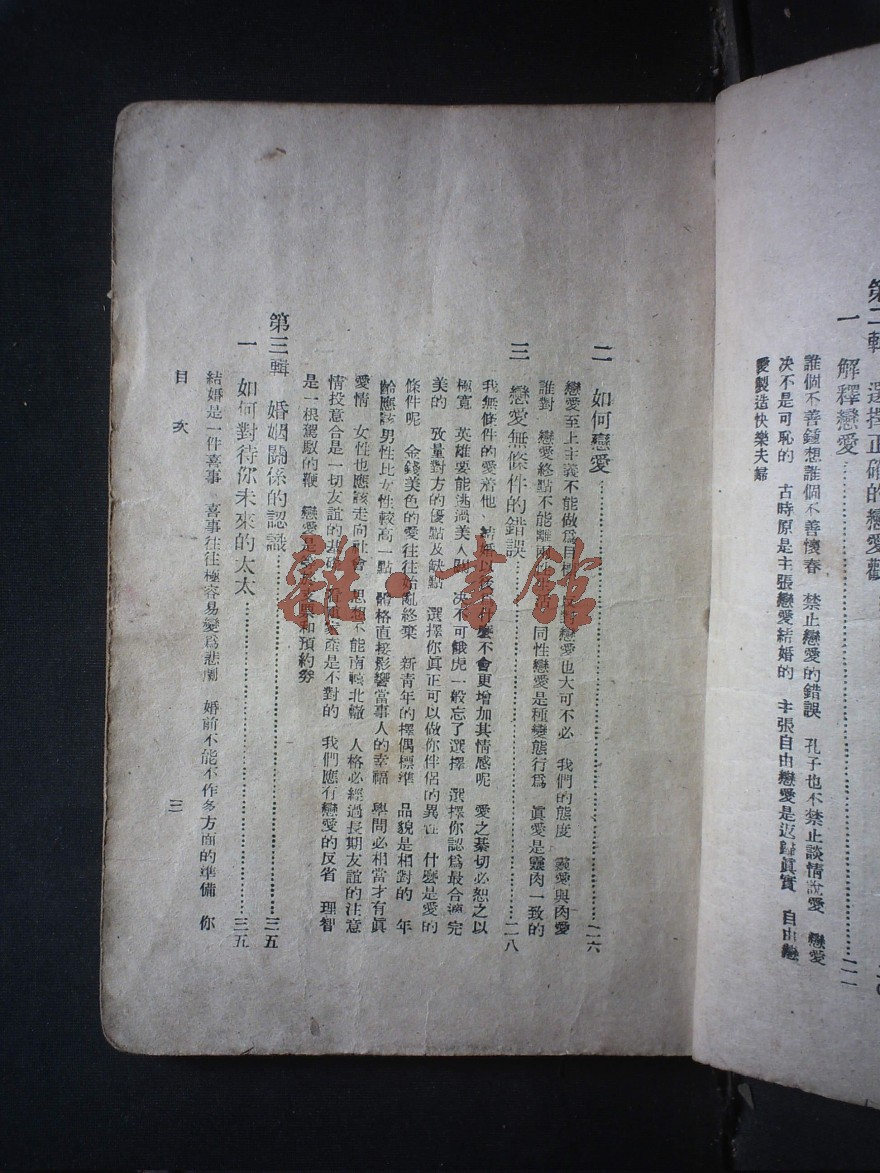 第二輯 選擇正確的戀愛觀
一 解釋戀愛………二一
誰個不善鍾想誰個不善懷春 禁止戀愛的錯誤 孔子也不禁止談情說愛 戀愛
决不是可恥的 古時原是主張戀愛結婚的 主張自由戀愛是返歸眞實 自由戀
愛製造快樂夫婦
二 如何戀愛………二六
戀愛至上主義不能做爲目標 反對戀愛也大可不必 我們的態度 靈愛與肉愛
誰對 戀愛終點不能離開 同性戀愛是種變態行爲 眞愛是靈肉一致的
三 戀愛無條件的錯誤………二八
我無條件的愛着他 結婚以後 什麼不會更增加其情感呢 愛之綦切必恕之以
極寬 英雄要能逃過美人關 决不可餓虎一般忘了選擇 選擇你認爲最合適完
美的 攷量對方的優點及缺點 選擇你眞正可以做你伴侶的異性 什麼是愛的
條件呢 金錢美色的愛往往始亂終棄 新青年的擇偶標準 品貌是相對的 年
齡應該男性比女性較高一點 體格直接影響當事人的幸福 學問必相當才有眞
愛情 女性也應該走向社會 思想不能南轅北轍 人格必經過長期友誼的注意
情投意合是一切友誼的基礎 看重家產是不對的 我們應有戀愛的反省 理智
是一根駕馭的鞭 戀愛是 和預約劵
第三輯 婚姻關係的認識………三五
一 如何對待你未來的太太………三五
結婚是一件喜事 喜事往往極容易變爲悲劇 婚前不能不作多方面的準備 你
目 次
三
雜·書館